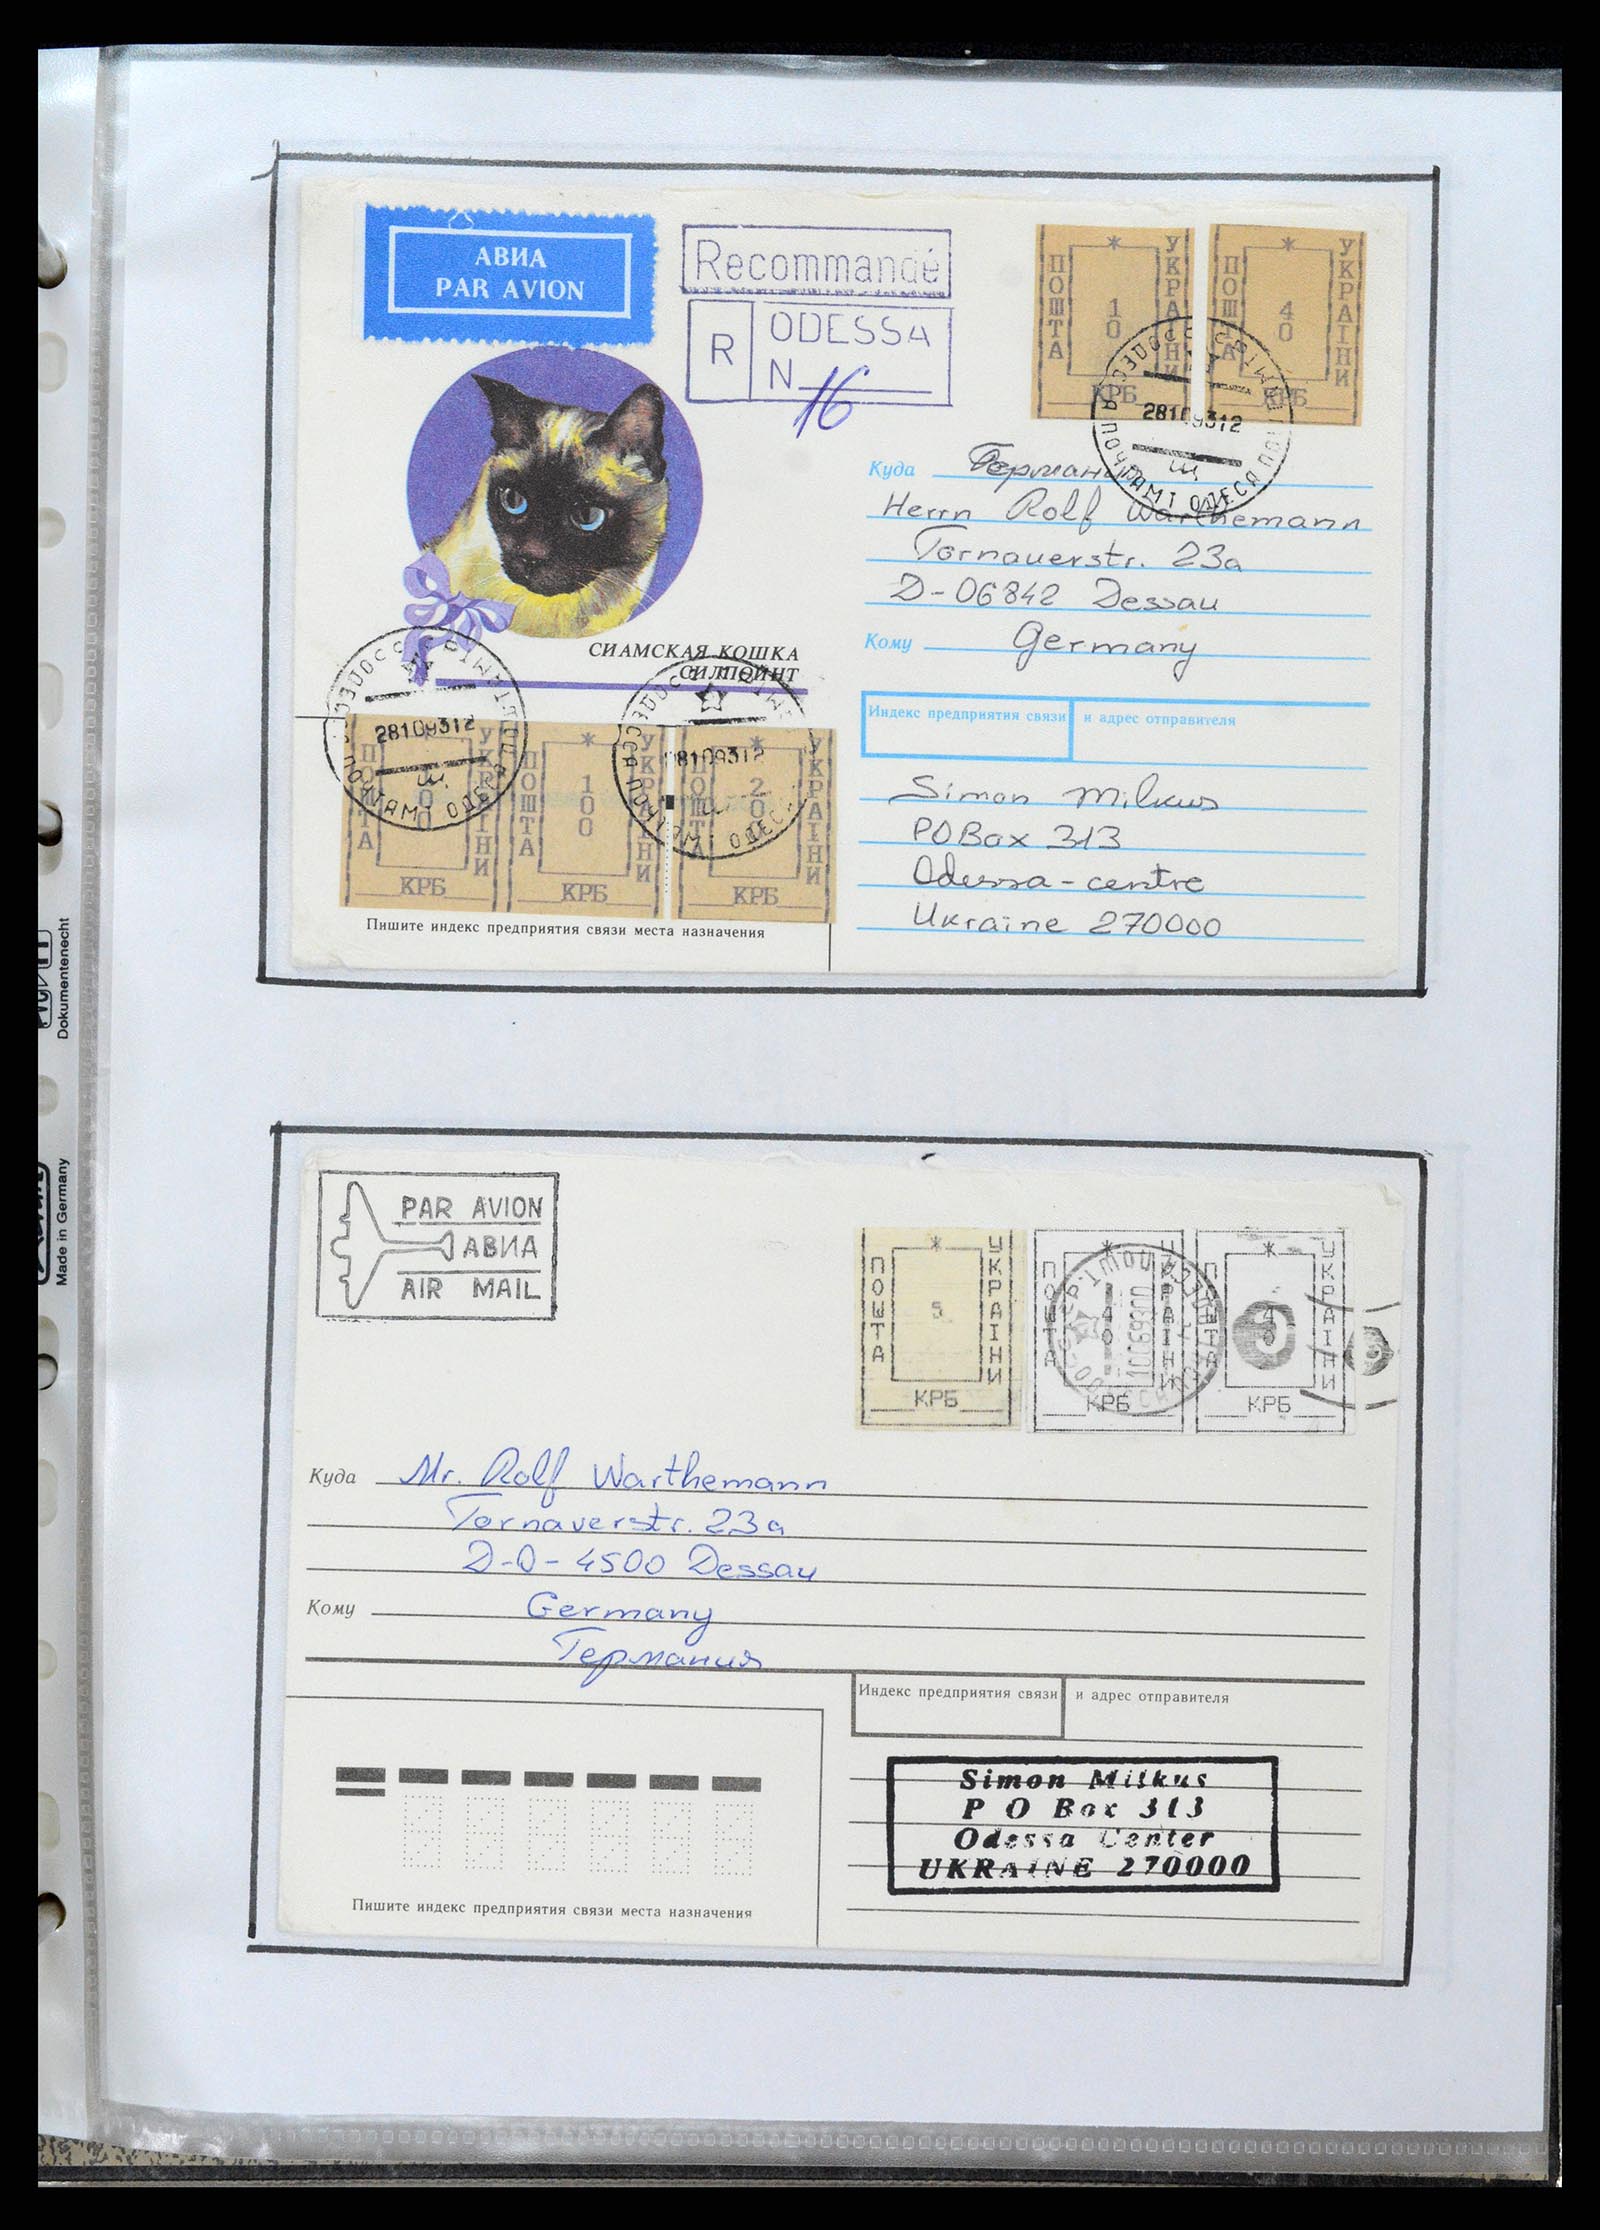 АВИА
PAR AVION
Recommandé
R
ODESSA
N 16
ПОШТА
УКРАІНИ
*
10
КРБ
ПОШТА
УКРАІНИ
*
40
КРБ
281093 12
ПОЧТАМТ ОДЕСА
Куда Германия
Herrn Rolf Warthemann
Tornauerstr. 23a
D-06842 Dessau
Кому Germany
СИАМСКАЯ КОШКА
СИЛПОЙНТ
Индекс предприятия связи и адрес отправителя
281093 12
ПОЧТАМТ ОДЕСА
ПОШТА
УКРАІНИ
КРБ
ПОШТА
УКРАІНИ
*
100
КРБ
ПОШТА
УКРАІНИ
*
200
Simon Milkus
PO Box 313
Odessa-centre
Ukraine 270000
Пишите индекс предприятия связи места назначения
Dokumentenecht
Made in Germany
PAR AVION
АВИА
AIR MAIL
ПОШТА
УКРАІНИ
*
5
КРБ
ПОШТА
УКРАІНИ
*
40
КРБ
УКРАІНИ
*
40
КРБ
Куда Mr. Rolf Warthemann
Tornaverstr. 23a
D-O-4500 Dessau
Кому Germany
Германия
Индекс предприятия связи и адрес отправителя
Simon Milkus
P O Box 313
Odessa Center
UKRAINE 270000
Пишите индекс предприятия связи места назначения